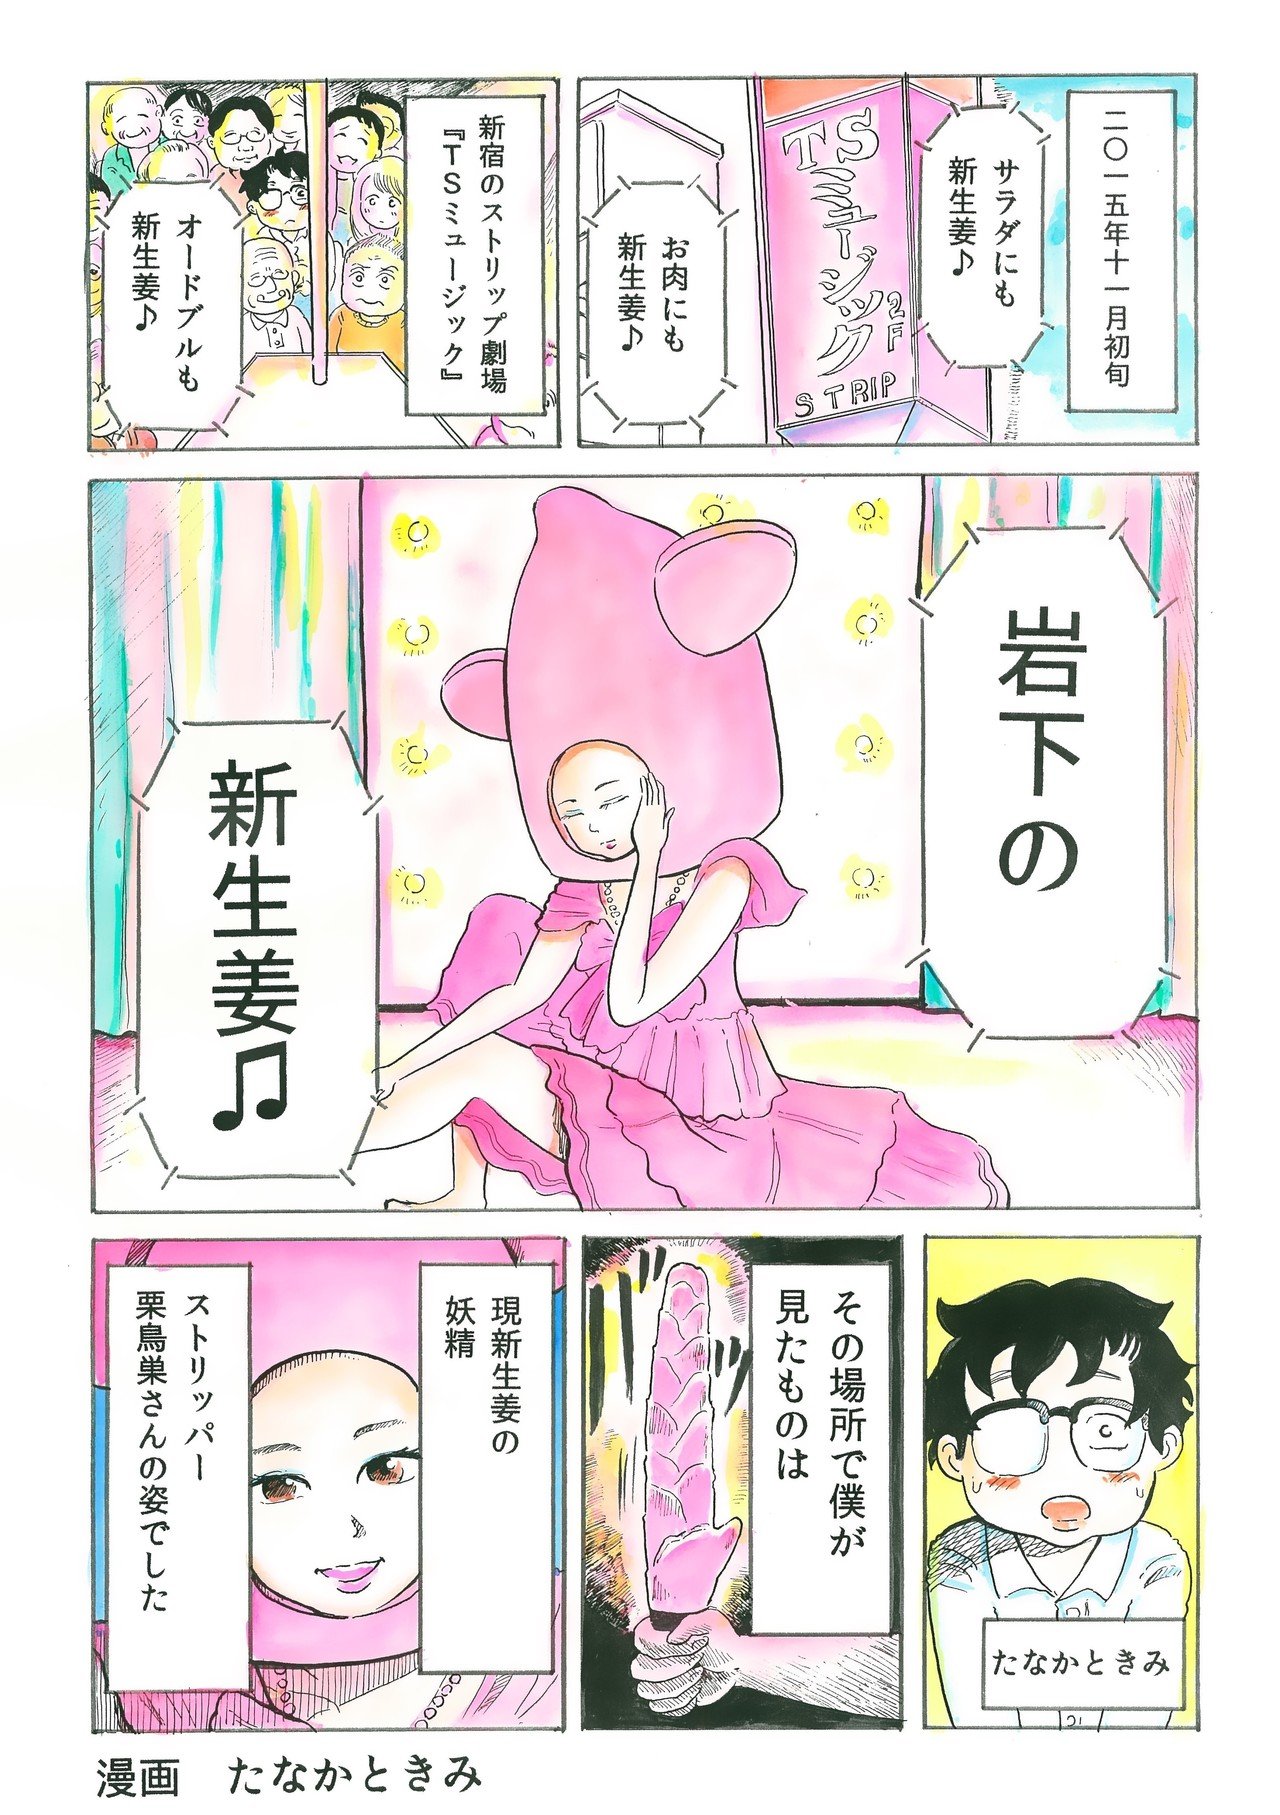 二〇一五年十一月初旬
サラダにも
新生姜♪
TSミュージック
2F
STRIP
お肉にも
新生姜♪
新宿のストリップ劇場
『TSミュージック』
オードブルも
新生姜♪
岩下の
新生姜♫
たなかときみ
その場所で僕が
見たものは
現新生姜の
妖精
ストリッパー
栗鳥巣さんの姿でした
漫画 たなかときみ